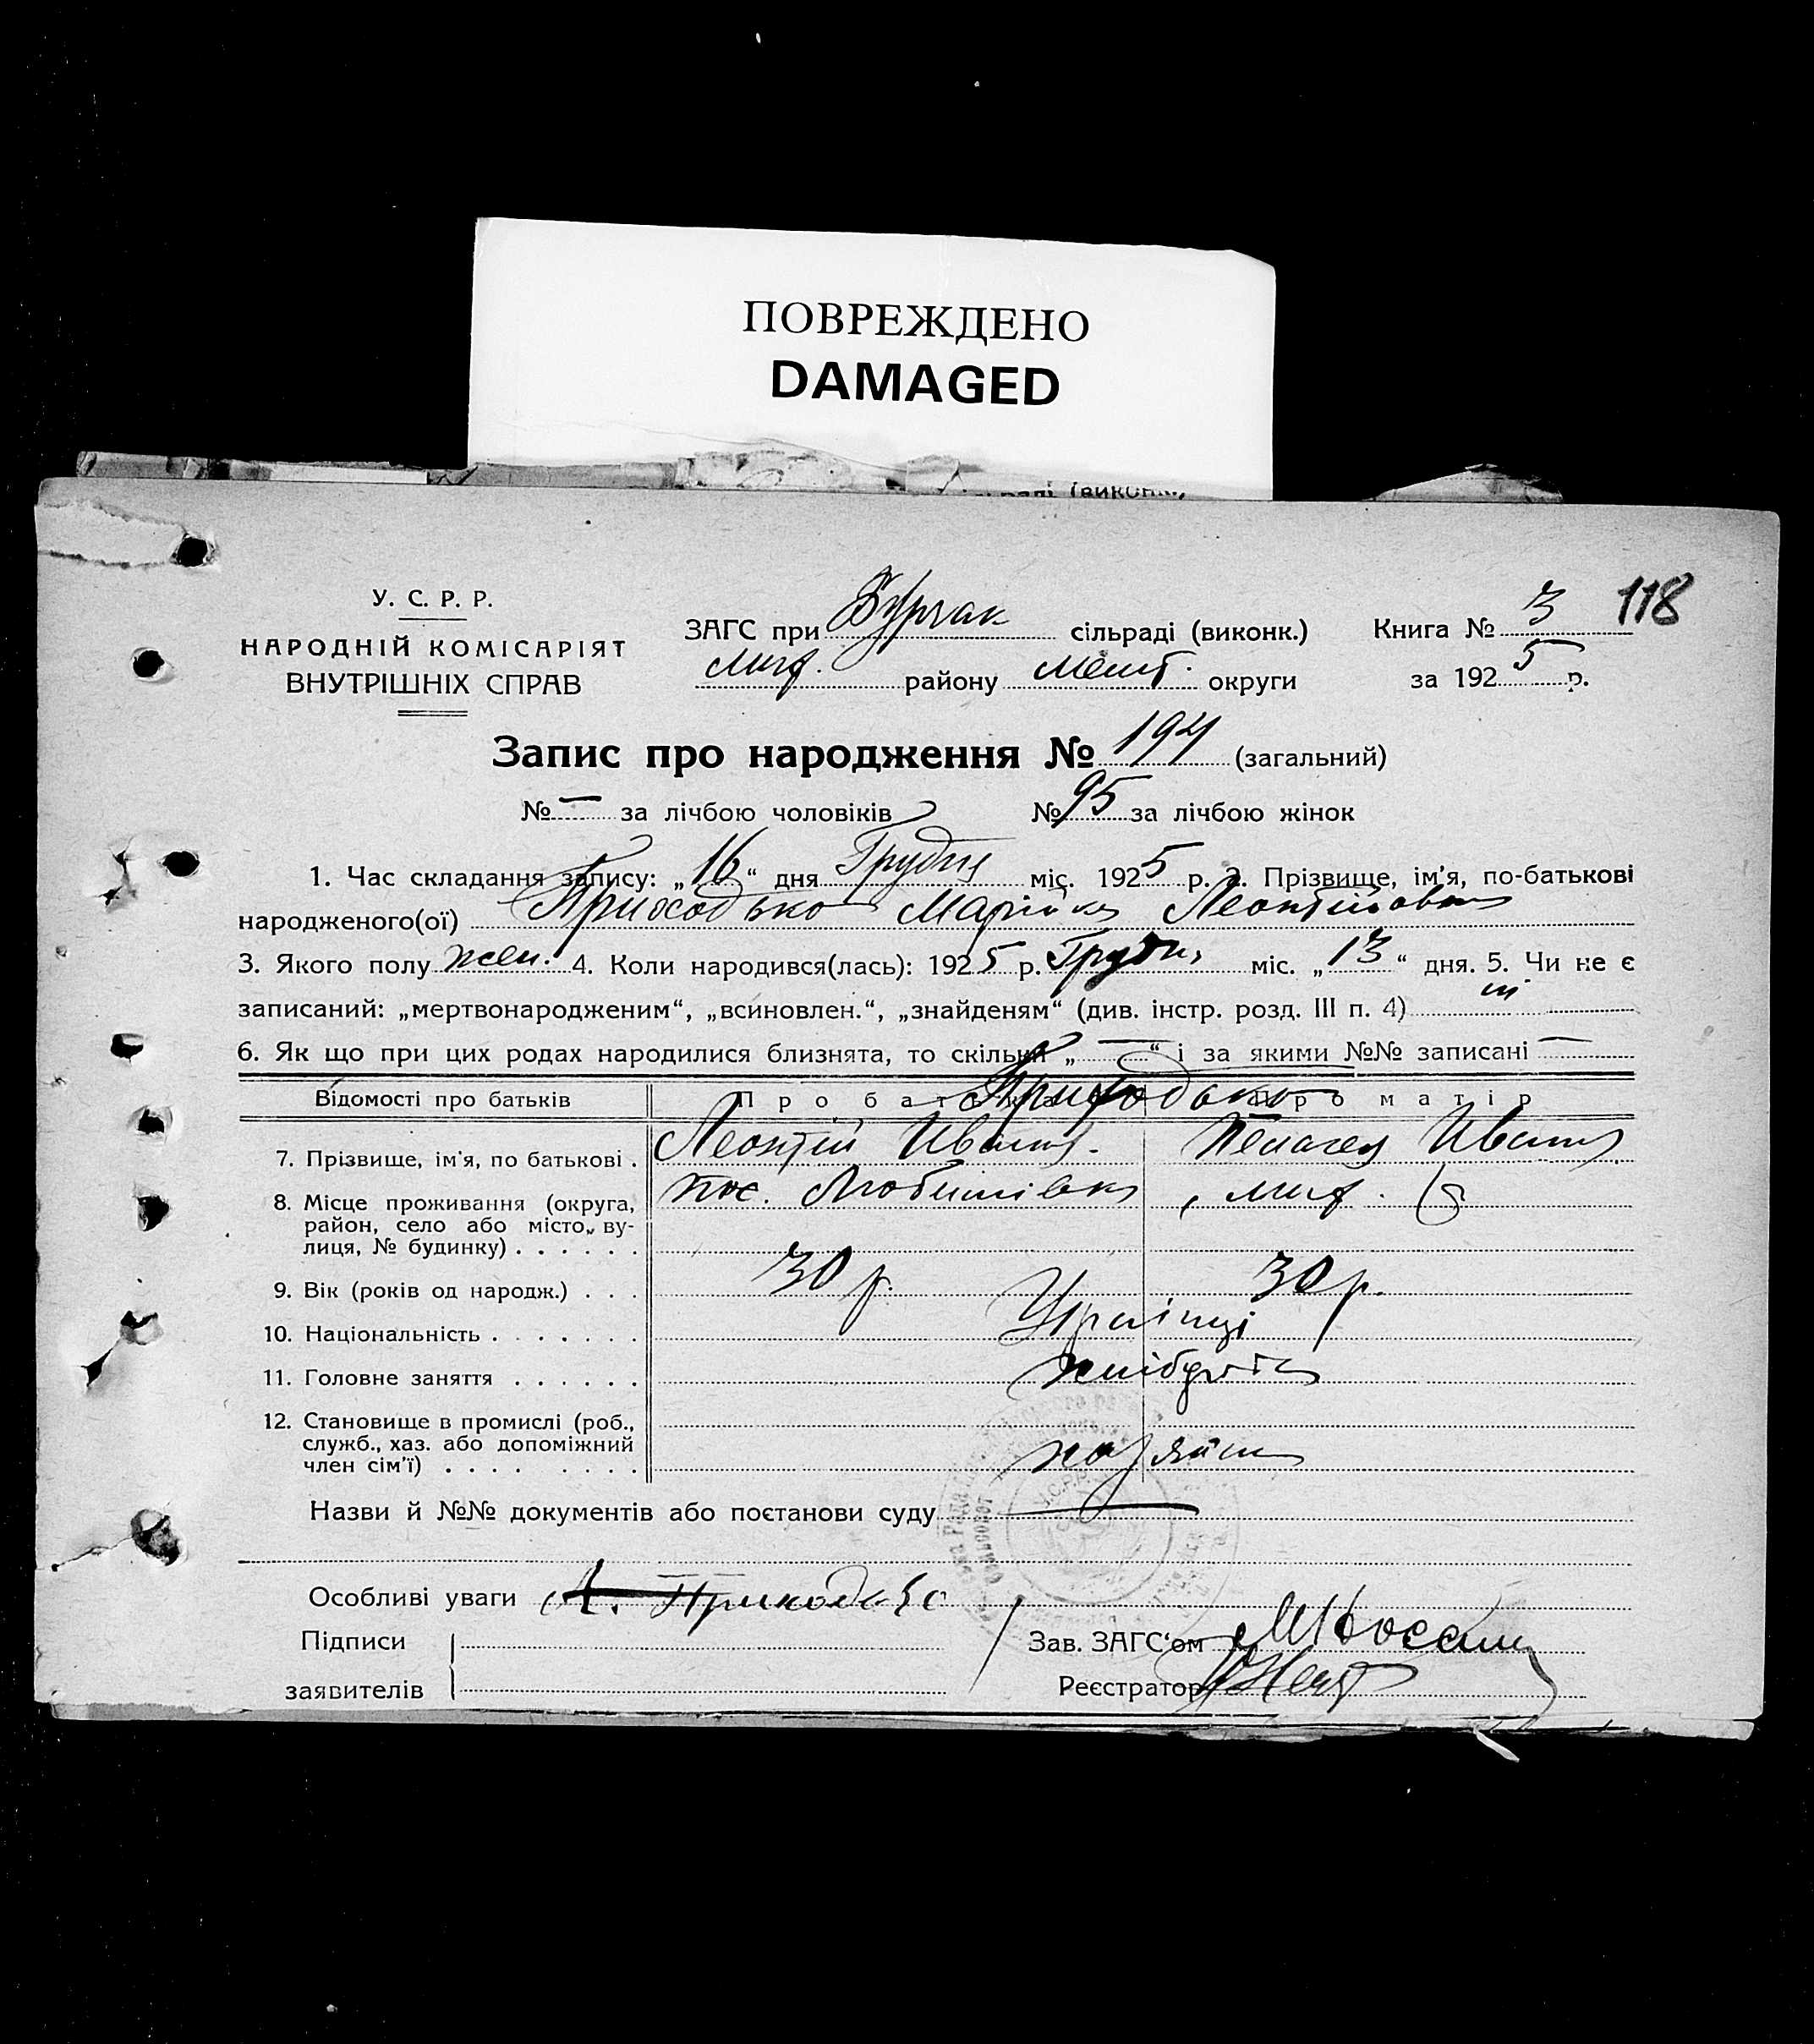 ПОВРЕЖДЕНО
DAMAGED
118
У. С. Р. Р.
НАРОДНІЙ КОМІСАРІЯТ
ВНУТРІШНІХ СПРАВ
ЗАГС при Бурчак сільраді (виконк.) Книга № 3
району Меліт. округи за 1925 р.
Запис про народження № 194 (загальний)
№ — за лічбою чоловіків № 95 за лічбою жінок
1. Час складання запису: „16“ дня Грудня міс. 1925 р. 2. Прізвище, ім'я, по-батькові
народженого(ої) Приходько Марійка Леонтійовна
3. Якого полу жен. 4. Коли народився(лась): 1925 р. Грудня міс. „13“ дня. 5. Чи не є
записаний: „мертвонародженим“, „всиновлен.“, „знайденям“ (див. інстр. розд. III п. 4) ні
6. Як що при цих родах народилися близнята, то скільки „—“ і за якими №№ записані —
Відомості про батьків Про батька Про матір
Приходько
7. Прізвище, ім'я, по батькові . Леонтій Иванов. Пелагея Иванов
8. Місце проживання (округа, район, село або місто,, вулиця, № будинку) . . . . . . пос. Любимівка
9. Вік (років од народж.) . . . 30 р. 30 р.
10. Національність . . . . . . . Українці
11. Головне заняття . . . . . . хлібороби
12. Становище в промислі (роб., служб., хаз. або допоміжний член сім'ї) . . . . . . . . хазяїни
Назви й №№ документів або постанови суду —
Особливі уваги Приходько
Підписи
заявителів
Зав. ЗАГС‘ом
Реєстратор